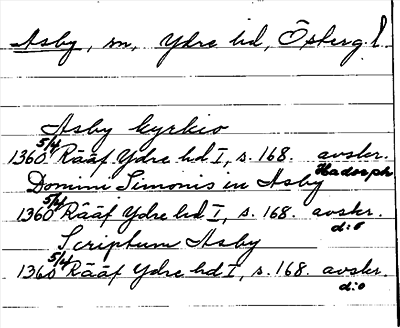 Asby, sn, Ydre hd, Österg.l.
Asby kyrkio
1360 5/4 Rääf Ydre hd I, s. 168. avskr. Hadorph
Domini Simonis in Asby
1360 5/4 Rääf Ydre hd I, s. 168. avskr. d:o
Scriptum Asby
1360 5/4 Rääf Ydre hd I, s. 168. avskr. d:o